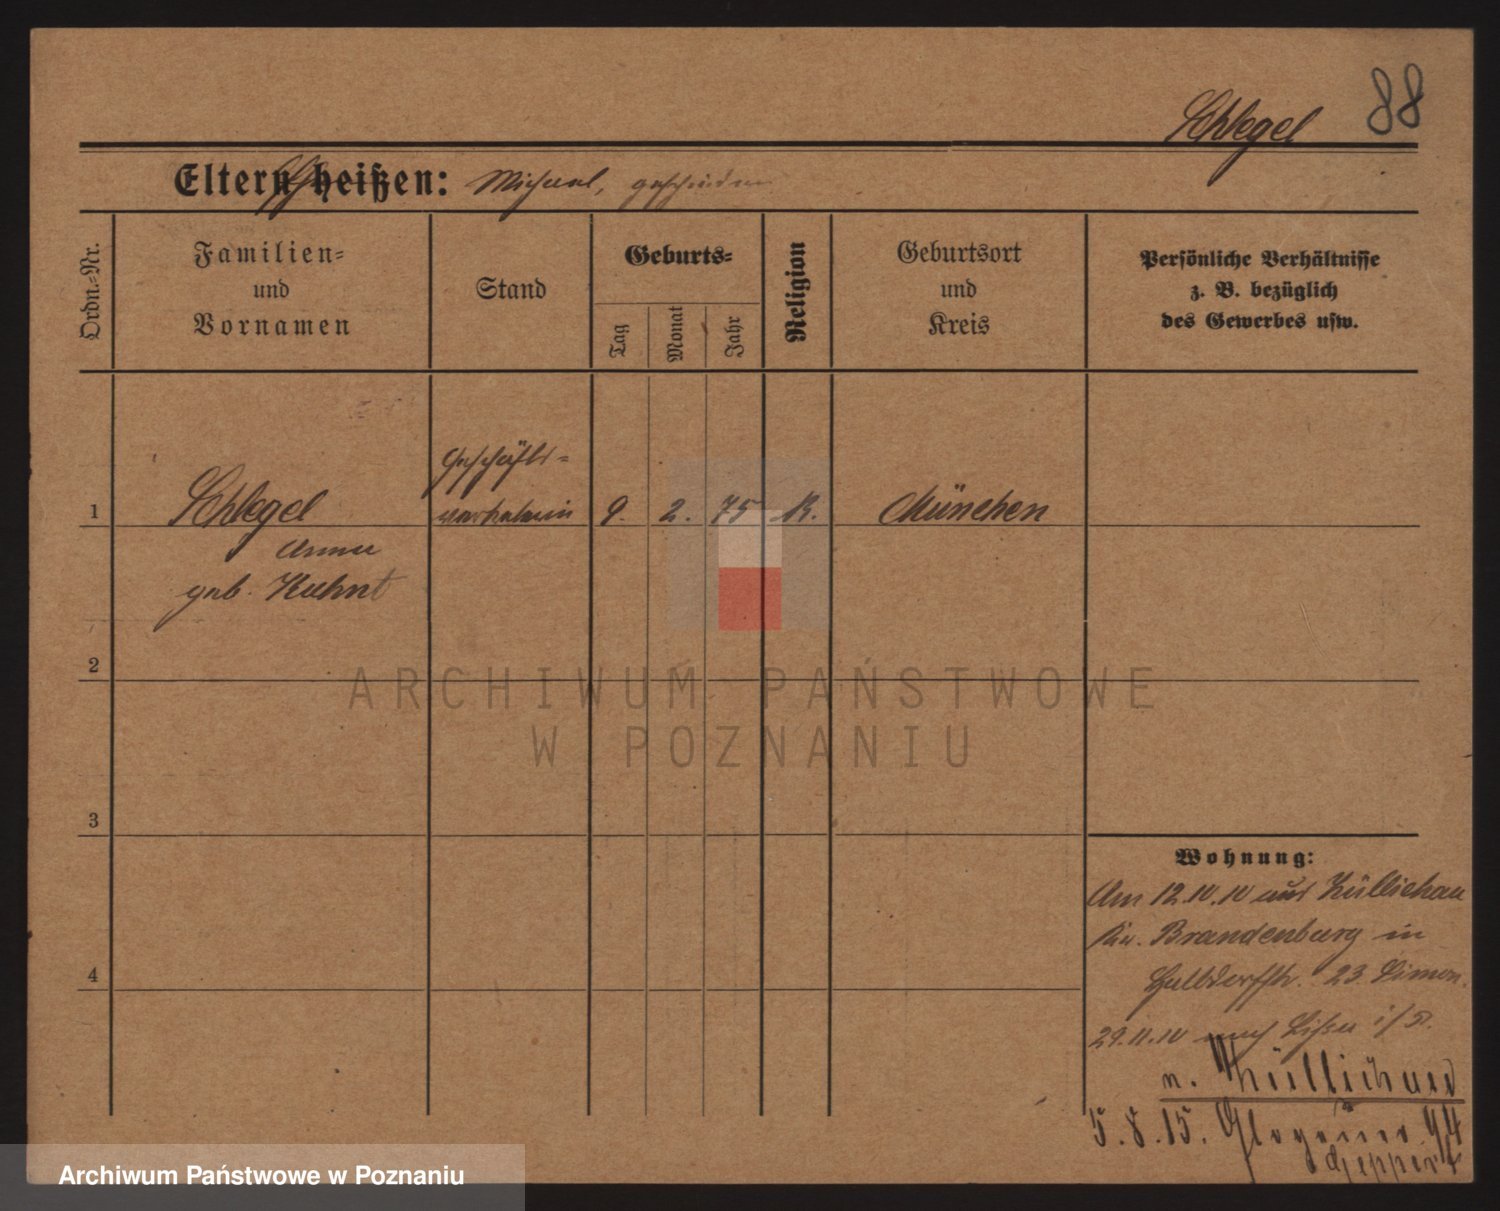 88
Schlegel
Eltern heißen: Michael, geschieden
Ordn.-Nr.
Familien-
und
Vornamen
Stand
Geburts-
Tag
Monat
Jahr
Religion
Geburtsort
und
Kreis
Persönliche Verhältnisse
z. B. bezüglich
des Gewerbes usw.
Geschäfts-
1 Schlegel 9. 2. 75 K. München
Anna
geb. Kuhnt
2
3
4
ARCHIWUM PAŃSTWOWE
W POZNANIU
Wohnung:
Am 12.10.10 aus Züllichau
Brandenburg in
23 Simon.
29.11.10 nach Lissa i/P.
n. Züllichau
5.8.15. Glogauer 94
Geppert
Archiwum Państwowe w Poznaniu